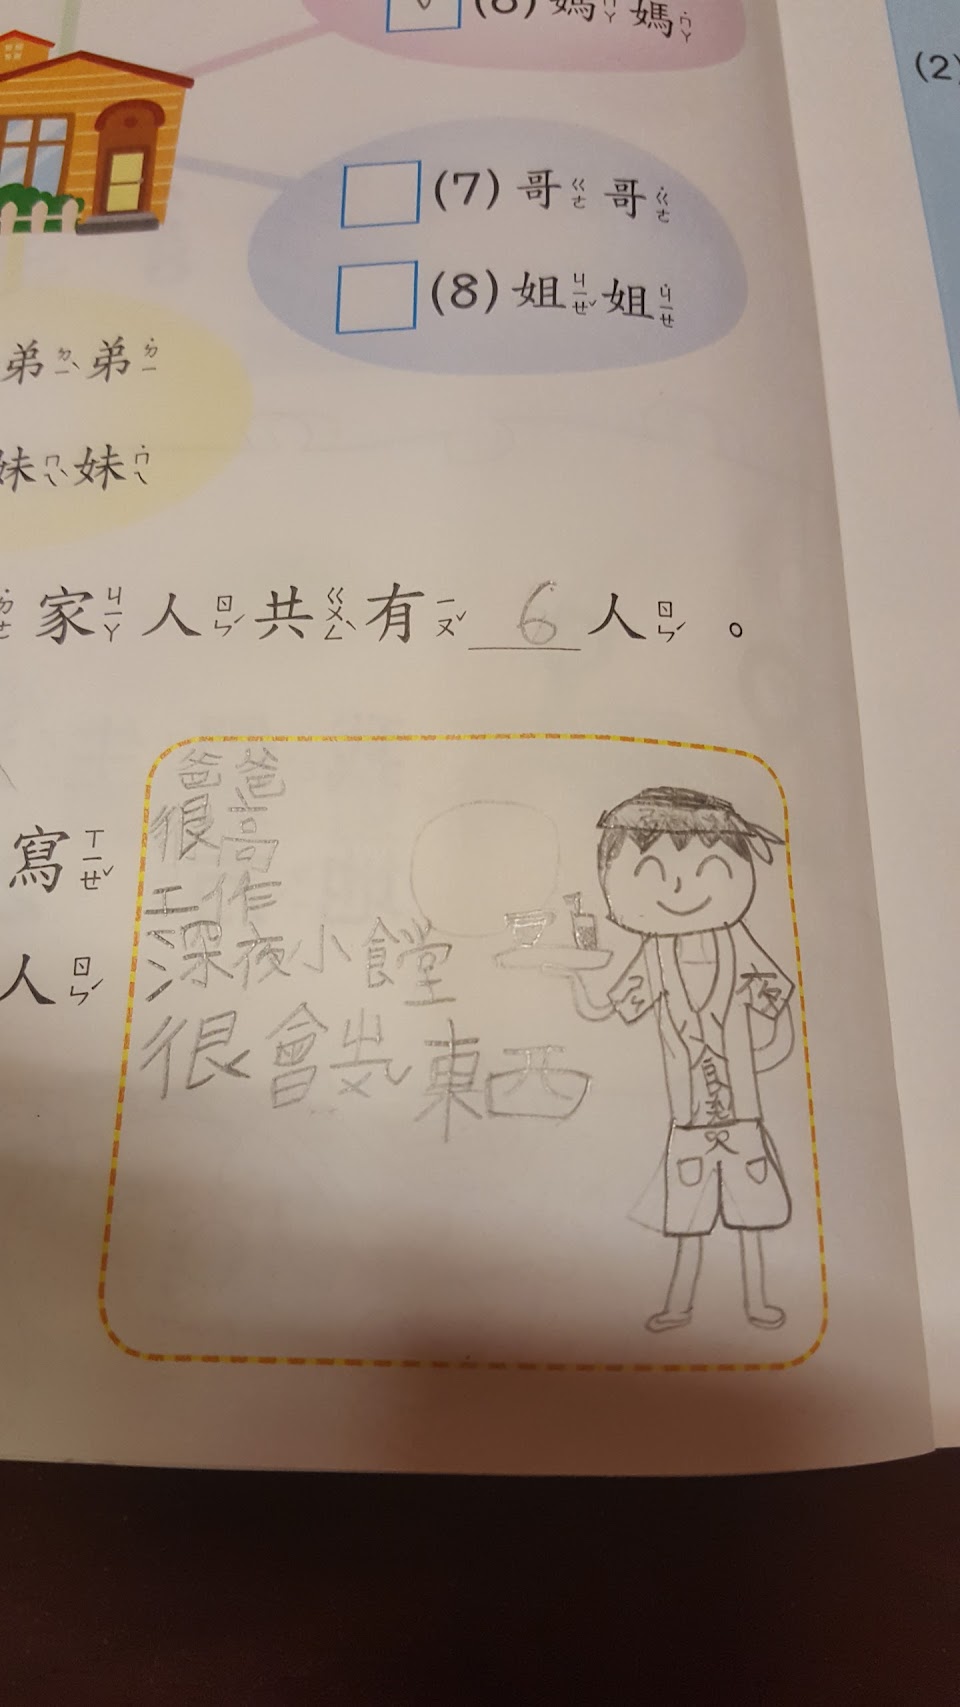 (6) 媽ㄇㄚ 媽˙ㄇㄚ
(2)
(7) 哥ㄍㄜ 哥˙ㄍㄜ
(8) 姐ㄐㄧㄝˇ 姐˙ㄐㄧㄝ
弟ㄉㄧˋ 弟˙ㄉㄧ
妹ㄇㄟˋ 妹˙ㄇㄟ
家ㄐㄧㄚ 人ㄖㄣˊ 共ㄍㄨㄥˋ 有ㄧㄡˇ 6 人ㄖㄣˊ 。
寫ㄒㄧㄝˇ
人ㄖㄣˊ
爸爸
很高
工作
深夜小食堂
很會煮東西
夜
食堂